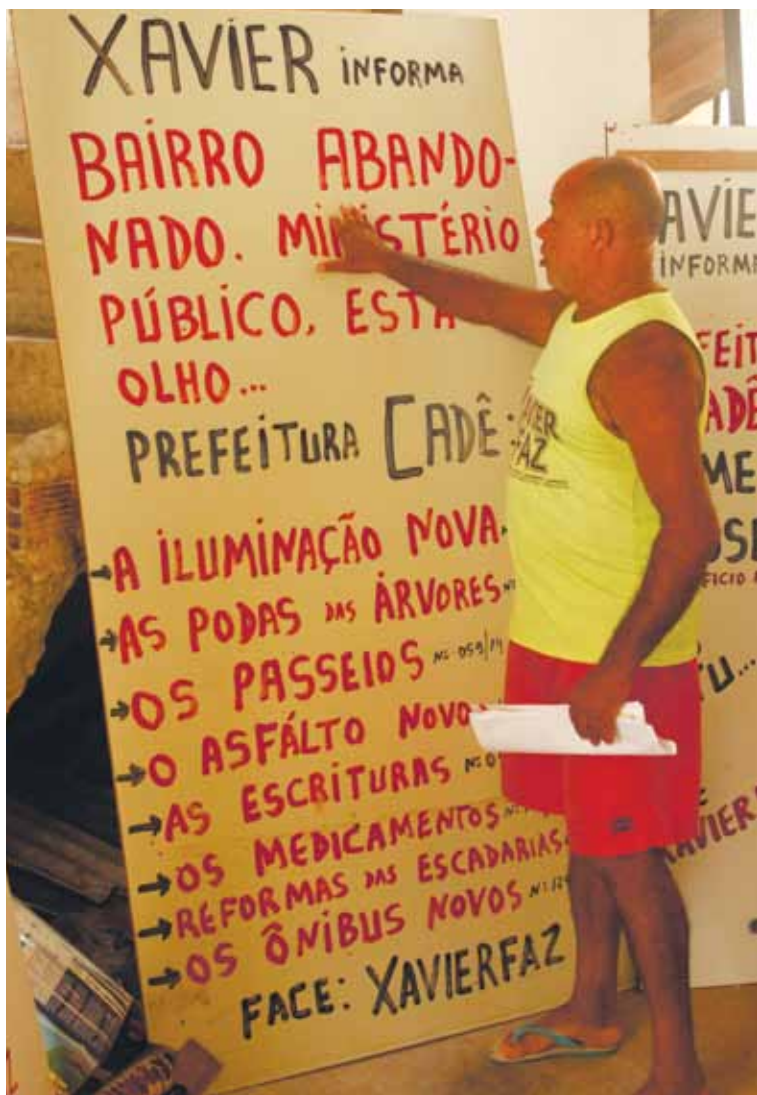 XAVIER INFORMA
BAIRRO ABANDO-
NADO. MINISTÉRIO
PÚBLICO, ESTÁ
OLHO...
PREFEITURA CADÊ:
→A ILUMINAÇÃO NOVA
→AS PODAS DAS ÁRVORES
→OS PASSEIOS Nº 059/14
→O ASFÁLTO NOVO
→AS ESCRITURAS
→OS MEDICAMENTOS
→REFORMAS DAS ESCADARIAS
→OS ÔNIBUS NOVOS
FACE: XAVIERFAZ
FAZ
INFORMA
XAVIER